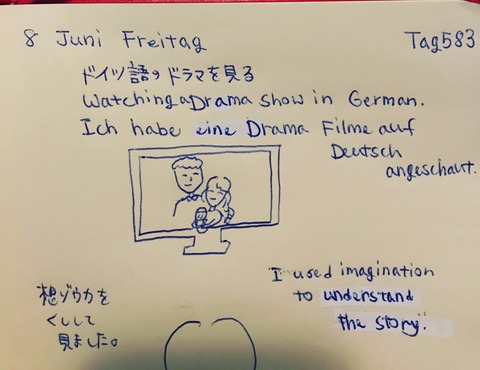 8 Juni Freitag
Tag583
ドイツ語のドラマを見る
Watching a Drama show in German.
Ich habe eine Drama Filme auf
Deutsch
angeschaut.
I used imagination
to understand
the story.
想ゾウカを
くしして
見ました。